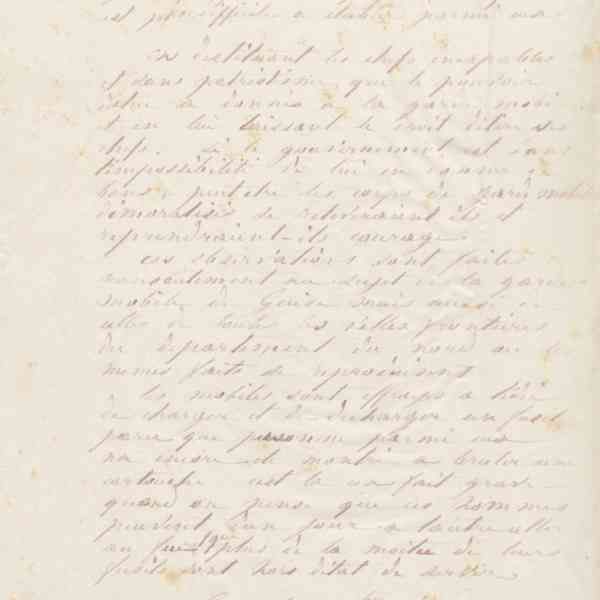 est plus difficile à établir parmi eux
en destituant les chefs incapables
et sans patriotisme que le pouvoir
a donnés à la garde mobile
et en lui laissant le droit d'élire ses
chefs. Si le gouvernement est dans
l'impossibilité de lui en donner de
bons, peut être les corps de garde mobile
démoralisés se relèveraient ils et
reprendraient-ils courage.
ces observations sont faites
non seulement au sujet de la garde
mobile de mais aussi de
celles de toutes les villes frontières
du département du nord où les
mêmes faits se reproduisent
les mobiles sont à
de charger et de décharger un fusil
parce que personne parmi eux
n'a encore été montré à bruler une
cartouche c'est là un fait grave
quand on pense que ces hommes
peuvent d'un jour à l'autre aller
au feu que plus de la moitié de leurs
fusils sont hors d'état de servir